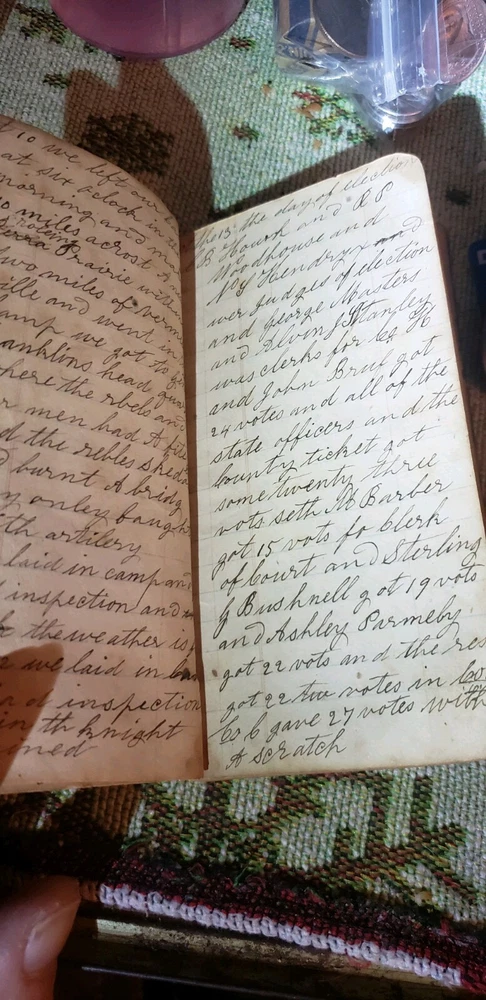 10 we left our
at six oclock in the
morning and m
miles acrost
Prairie with
two miles of verm
ille and went in
camp we got to
anklins head quar
where the rbels and
r men had A
d the rebles
burnt A bridg
y onley
th artilery
laid in camp an
inspection and
the weather is
we laid in
inspection
in th knight
ined
the 13. the day of election
B Houck and R P
Woodhouse and
N Y Hendryx and
wer judges of election
and george Masters
and Alvin J Stanley
was clerks for Co H
and John Bruf got
24 votes and all of the
state officers and the
County ticket got
some twenty three
vots seth M Barber
got 15 vots fo Clerk
of Court and Sterling
G Bushnell got 19 vots
and Ashley Parmeby
got 22 vots and the res
got 22 two votes in Co
Co C gave 27 votes with
A scratch